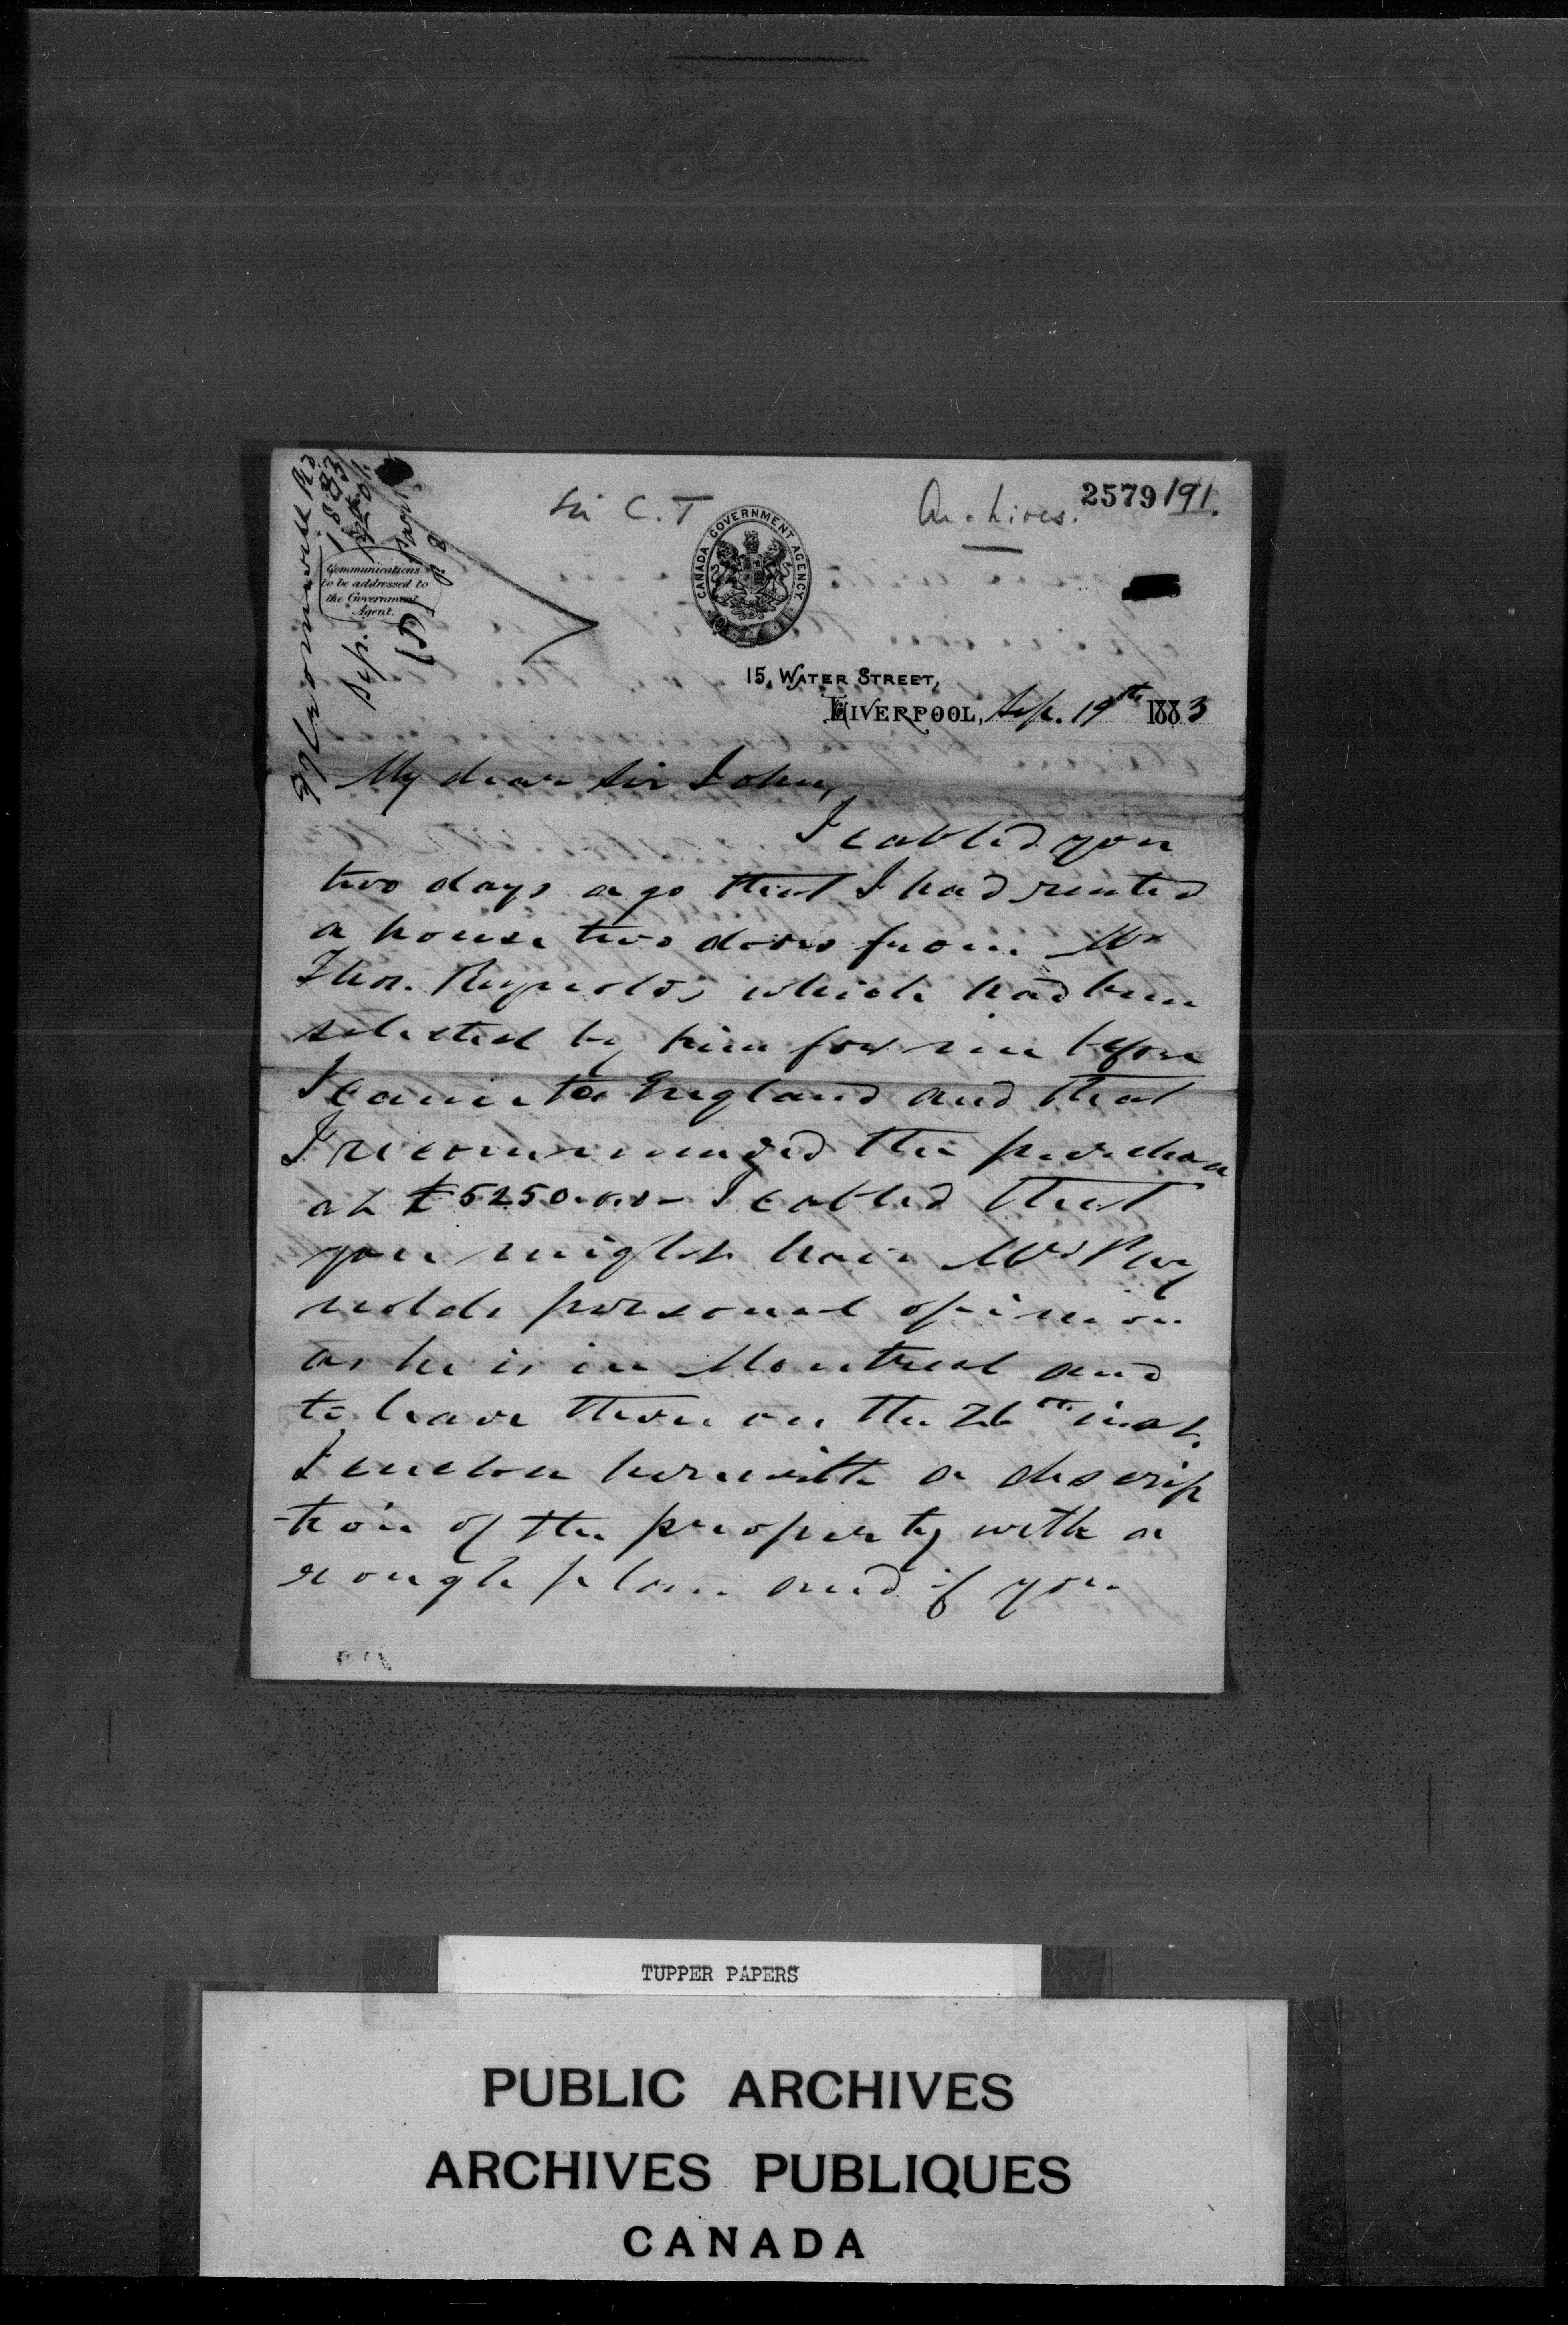 Sir C. T
Archives.
2579
191.
97 Cromwell Rd.
1883
Sep.
Communications
to be addressed to
the Government
Agent.
CANADA GOVERNMENT AGENCY
15, WATER STREET,
LIVERPOOL, Sep. 19th 1883
My dear Sir John,
I cabled you
two days ago that I had rented
a house two doors from Mr
Thos. Reynolds which had been
selected by him for me before
I came to England and that
I recommended the purchase
at £5250.0.0 - I cabled that
you might have Mr Rey
nolds personal opinion
as he is in Montreal and
to leave there on the 26th inst.
I enclose herewith a descrip
-tion of the property with a
rough plan and if you
TUPPER PAPERS
PUBLIC ARCHIVES
ARCHIVES PUBLIQUES
CANADA